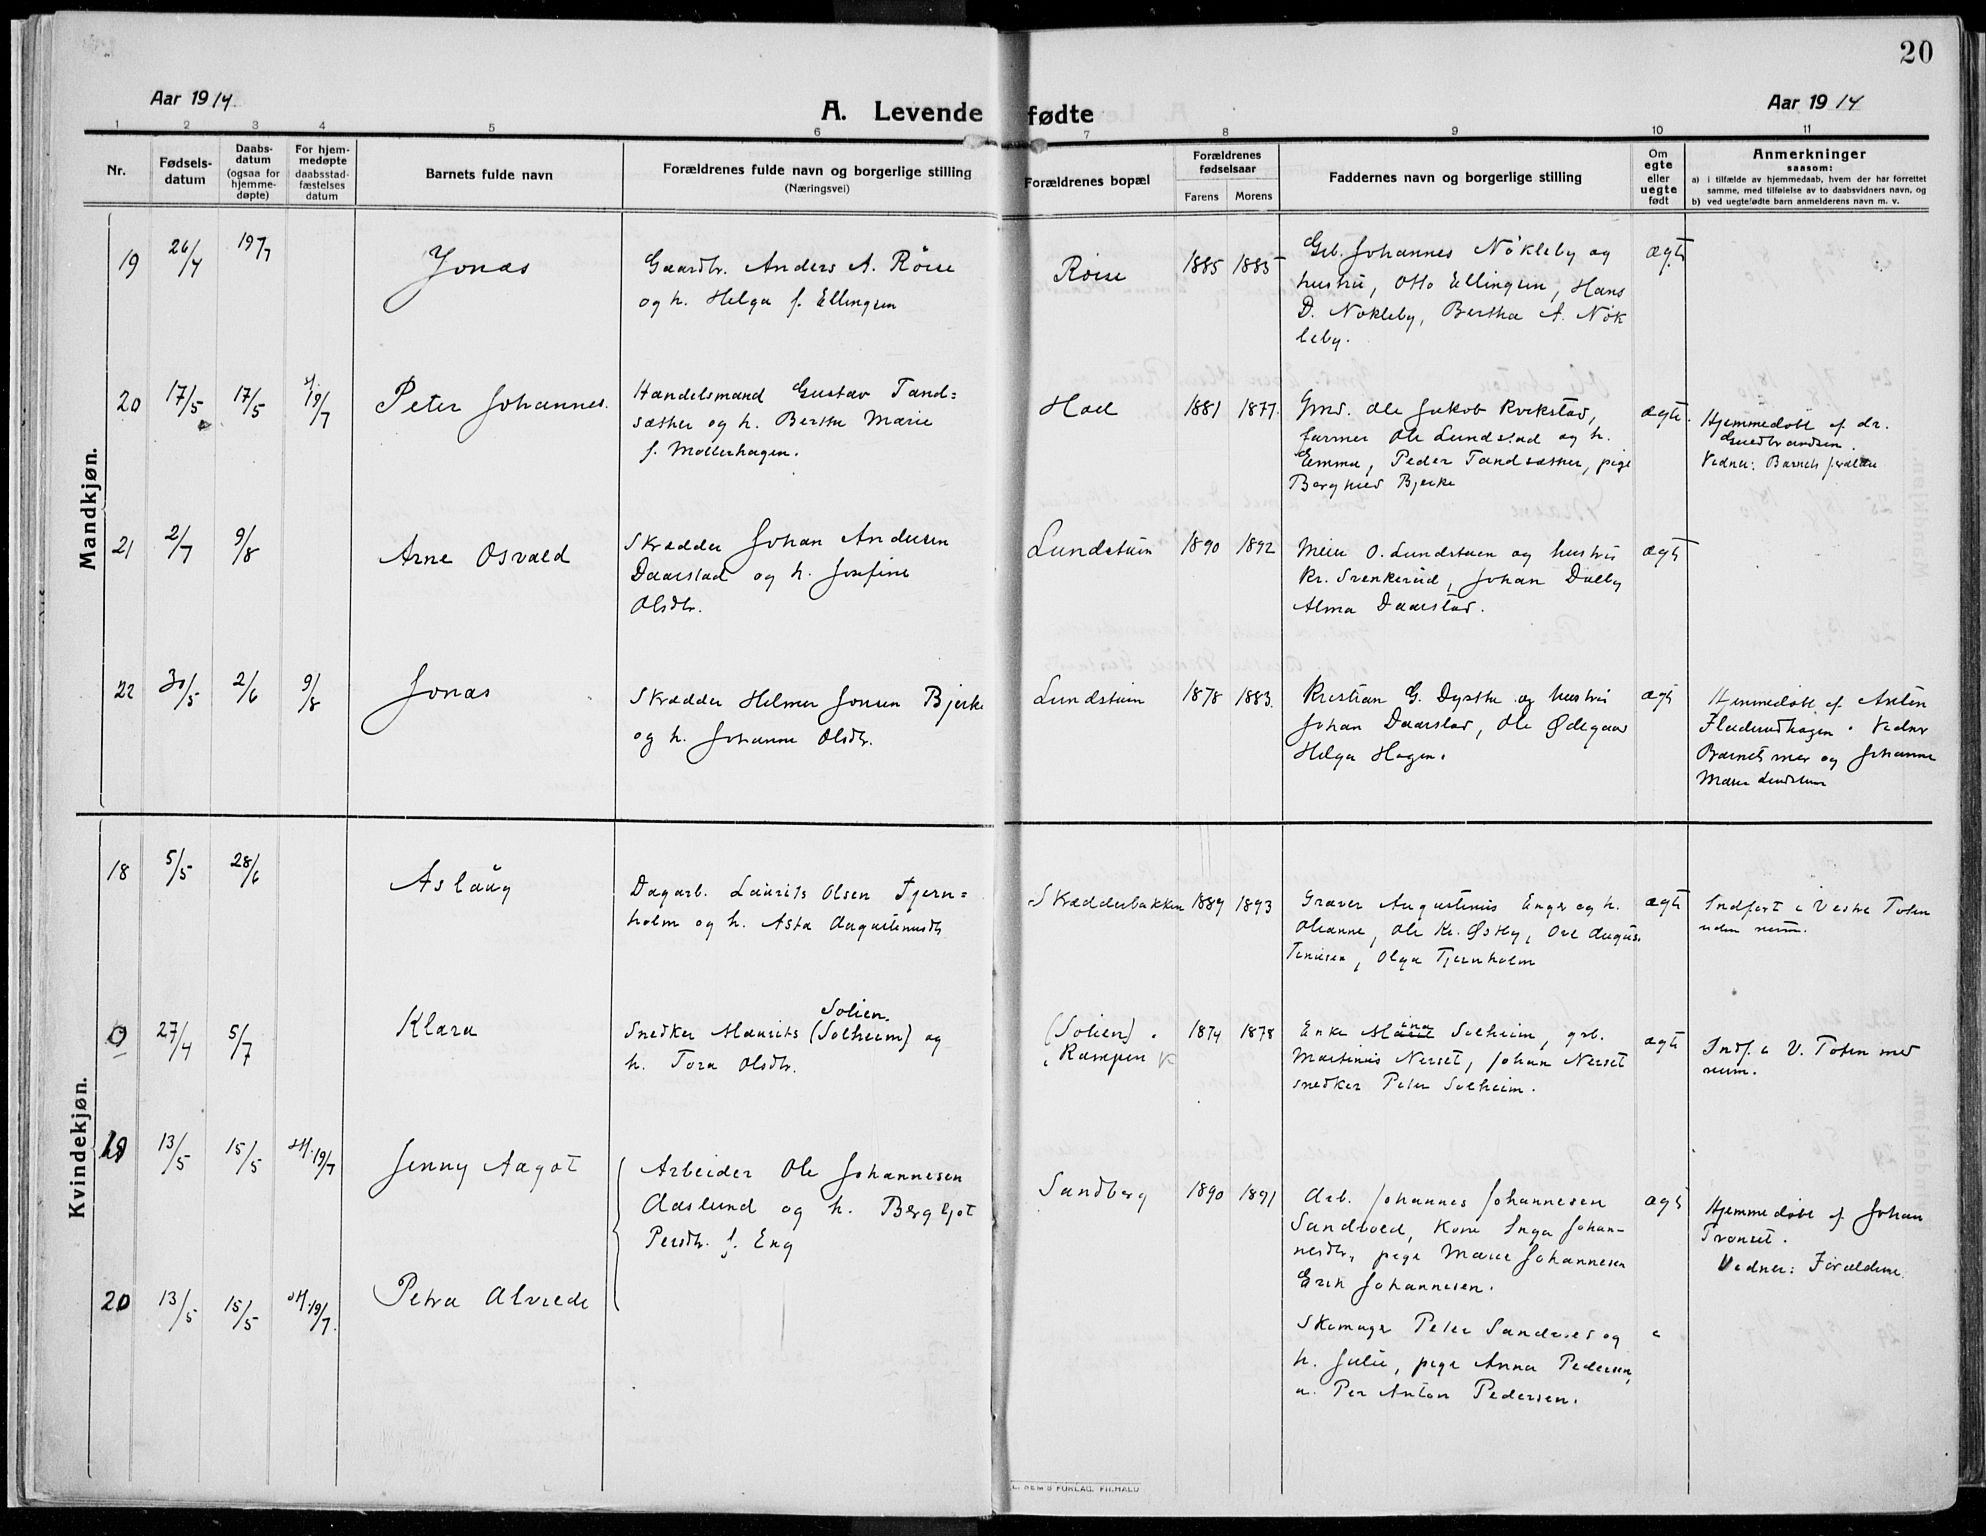 20
Aar 1914. A. Levende fødte Aar 1914
1 2 3 4 5 6 7 8 9 10 11
Nr.
Fødsels-
datum
Daabs-
datum
(ogsaa for
hjemme-
døpte)
For hjem-
medøpte
daabsstad-
fæstelses
datum
Barnets fulde navn
Forældrenes fulde navn og borgerlige stilling
(Næringsvei)
Forældrenes bopæl
Forældrenes
fødselsaar
Farens Morens
Faddernes navn og borgerlige stilling
Om
egte
eller
uegte
født
Anmerkninger
saasom:
a) i tilfælde av hjemmedaab, hvem der har forrettet
samme, med tilføielse av to daabsvidners navn, og
b) ved uegtefødte barn anmelderens navn m. v.
Mandkjøn.
19 26/4 19/7 Jonas
Gaardbr. Anders A. Røise
og h. Helga f. Ellingsen
Røise 1885 1885
Grb. Johannes Nökleby og
hustru, Otto Ellingsen, Hans
D. Nökleby, Bertha A. Nök
leby.
ægte
20 17/5 17/5 st. 19/7 Peter Johannes.
Handelsmand Gustav Tand=
sæther og h. Berthe Marie
f. Møllerhagen.
Hoel 1881 1877.
Gmd. Ole Jakob Kvikstad,
farmer Ole Lundstad og h.
Emma, Peder Tandsæther, pige
Borghild Bjerke
ægte.
Hjemmedøbt af dr.
Guldbrandsen.
Vidner: Barnets forældre
21 2/7 9/8 Arne Osvald
Skrædder Johan Andersen
Daarstad og h. Josefine
Olsdtr.
Lundstuen 1890 1892
Meier O. Lundstuen og hustru
Kr. Svenkerud, Johan Dalby
Alma Daarstad.
ægte
22 30/5 2/6 9/8 Jonas
Skrædder Helmer Jonsen Bjerke
og h. Johanne Olsdtr.
Lundstuen 1878 1883.
Kristian G. Dysthe og hustru
Johan Daarstad, Ole Ødegaard
Helga Hagen.
ægte
Hjemmedøbt af Anton
Fladerudhagen. Vidner
Barnets mor og Johanne
Marie Lundstuen
Kvindekjøn.
18 5/5 28/6 Aslaug
Dagarb. Laurits Olsen Tjern=
holm og h. Asta Augustinusdtr
Skrædderbakken 1889 1893
Graver Augustinus Enger og h.
Oleanne, Ole Kr. Østby, Ole Augus-
tinusen, Olga Tjernholm
ægte
Indført i Vestre Toten
uden num.
0 27/4 5/7 Klara
Solien.
Snedker Maurits (Solheim) og
h. Tora Olsdtr.
(Solien)
Rampen 1874 1878
Enke Solheim, grb.
Martinus Nerset, Johan Nerset
snedker Peter Solheim.
ægte
Indf. i V. Toten med
num.
19 13/5 15/5 st. 19/7 Jenny Aagot
Arbeider Ole Johannesen
Aaslund og h. Bergljot
Persdtr. f. Eng
Sandberg 1890 1891
Arb. Johannes Johannesen
Sandvold, Kone Inga Johan-
nesdtr, pige Marie Johannesen
Erik Johannesen.
ægte
Hjemmedøbt af Johan
Tronset.
Vidner: Forældrene.
20 13/5 15/5 st. 19/7. Petra Alvilde
Skomager Peter og
h. Julie, pige Anna Pedersen,
u. Per Anton Pedersen.
FORLAG, FR.HALD